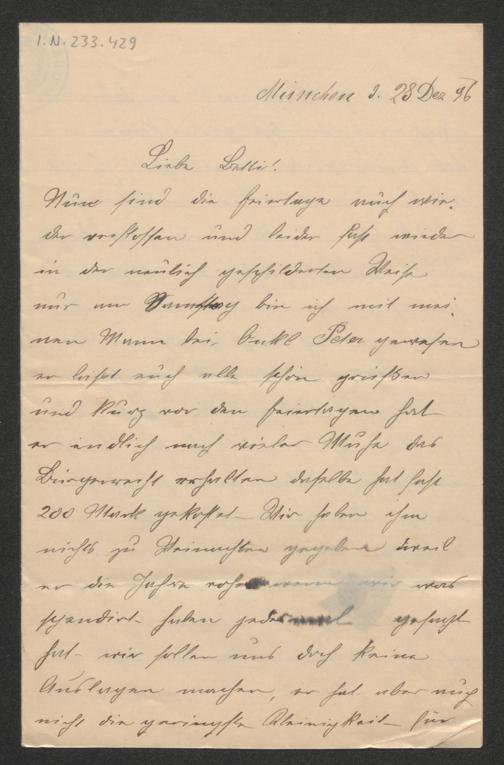 I.N. 233.429
München d. 28 Dez 96
Liebe Betti!
Nun sind die Feiertage auch wie-
der verflossen und leider fast wieder
in der neulich geschilderten Weise
nur am Samstag bin ich mit mei-
nen Mann bei Onkl Peter gewesen
er läßt euch alle schön grüßen
und kurz vor den Feiertagen hat
er endlich nach vieler Mühe das
Bürgerrecht erhalten daselbe hat fast
200 Mark gekostet Wir haben ihm
nichts zu Weinachten gegeben weil
er die Jahre wenn wir was
spendirt haben jedesmal gesagt
hat wir sollen uns doch keine
Auslagen machen, er hat aber auch
nicht die geringste Kleinigkeit für